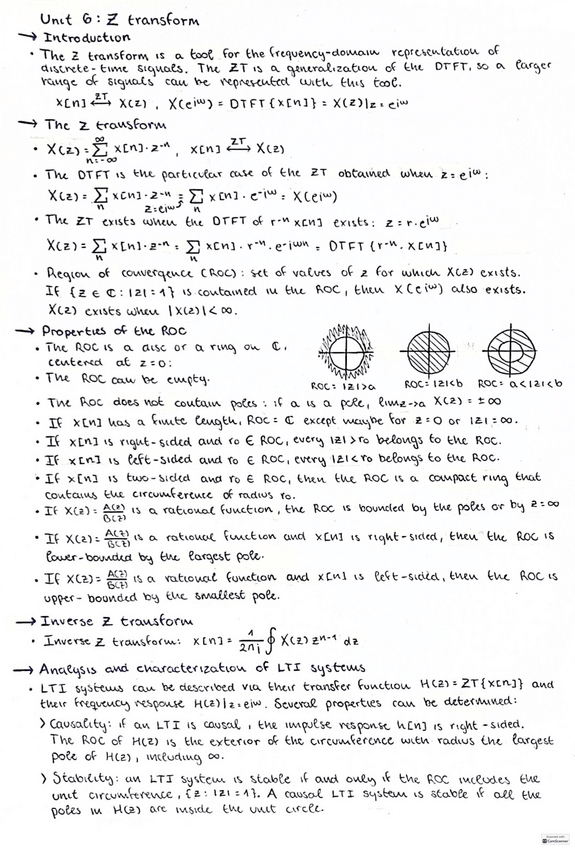 Unit 6: Z transform
→ Introduction
• The Z transform is a tool for the frequency-domain representation of
discrete-time signals. The ZT is a generalization of the DTFT, so a larger
range of signals can be represented with this tool.
x[n] ⟷^ZT X(z) , X(e^jω) = DTFT{x[n]} = X(z)|z=e^jω
→ The Z transform
• X(z) = ∑_{n=-∞}^{∞} x[n]·z^-n , x[n] ⟷^ZT X(z)
• The DTFT is the particular case of the ZT obtained when z=e^jω:
X(z) = ∑_n x[n]·z^-n =_{z=e^jω} ∑_n x[n]·e^-jω = X(e^jω)
• The ZT exists when the DTFT of r^-n x[n] exists: z=r·e^jω
X(z) = ∑_n x[n]·z^-n = ∑_n x[n]·r^-n·e^-jωn = DTFT{r^-n·x[n]}
• Region of convergence (ROC): set of values of z for which X(z) exists.
If {z ∈ ℂ: |z|=1} is contained in the ROC, then X(e^jω) also exists.
X(z) exists when |X(z)|<∞.
→ Properties of the ROC
• The ROC is a disc or a ring on ℂ,
centered at z=0:
• The ROC can be empty.
ROC=|z|>a ROC=|z|<b ROC=a<|z|<b
• The ROC does not contain poles: if a is a pole, lim z→a X(z) = ±∞
• If x[n] has a finite length, ROC=ℂ except maybe for z=0 or |z|=∞.
• If x[n] is right-sided and r0 ∈ ROC, every |z|>r0 belongs to the ROC.
• If x[n] is left-sided and r0 ∈ ROC, every |z|<r0 belongs to the ROC.
• If x[n] is two-sided and r0 ∈ ROC, then the ROC is a compact ring that
contains the circumference of radius r0.
• If X(z)=A(z)/B(z) is a rational function, the ROC is bounded by the poles or by z=∞
• If X(z)=A(z)/B(z) is a rational function and x[n] is right-sided, then the ROC is
lower-bounded by the largest pole.
• If X(z)=A(z)/B(z) is a rational function and x[n] is left-sided, then the ROC is
upper-bounded by the smallest pole.
→ Inverse Z transform
• Inverse Z transform: x[n] = 1/2πj ∮ X(z) z^n-1 dz
→ Analysis and characterization of LTI systems
• LTI systems can be described via their transfer function H(z)=ZT{x[n]} and
their frequency response H(z)|z=e^jω. Several properties can be determined:
> Causality: if an LTI is causal, the impulse response h[n] is right-sided.
The ROC of H(z) is the exterior of the circumference with radius the largest
pole of H(z), including ∞.
> Stability: an LTI system is stable if and only if the ROC includes the
unit circumference, {z:|z|=1}. A causal LTI system is stable if all the
poles in H(z) are inside the unit circle.
CamScanner